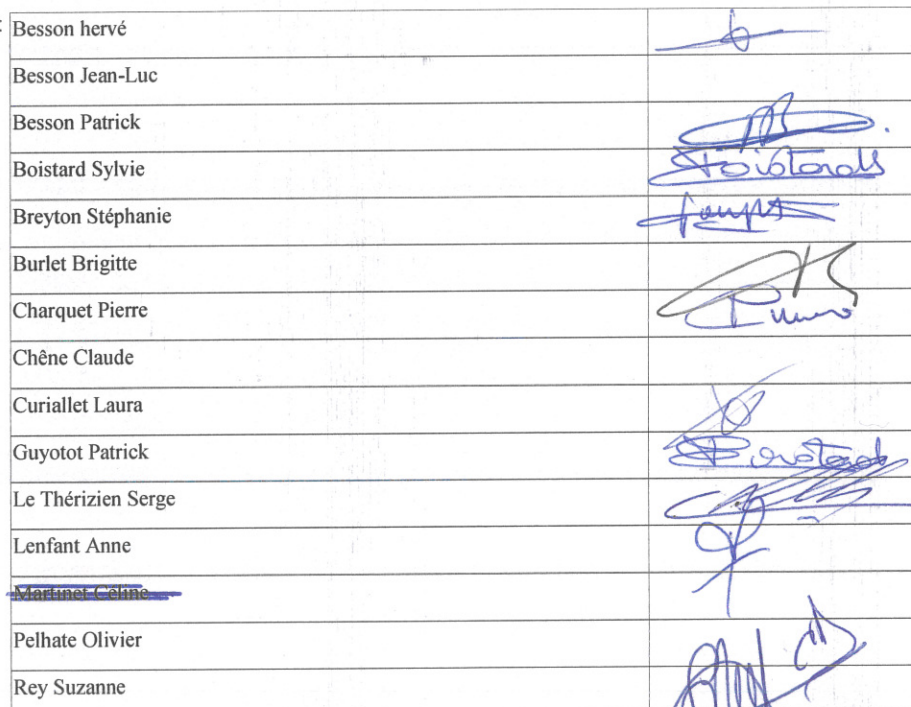 Besson hervé
Besson Jean-Luc
Besson Patrick
Boistard Sylvie
Boistards
Breyton Stéphanie
Burlet Brigitte
Charquet Pierre
Chêne Claude
Curiallet Laura
Guyotot Patrick
Boistard
Le Thérizien Serge
Lenfant Anne
Martinet Céline
Pelhate Olivier
Rey Suzanne